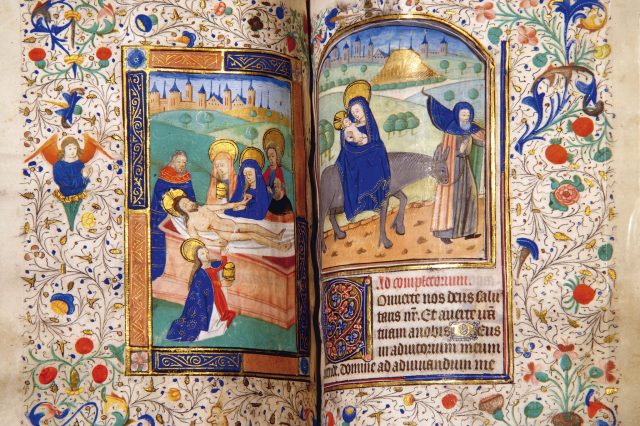 Ad completorium.
Conuerte nos deus salu
taris nr̄. Et auerte irā
tuam a nobis Deus
in adiutorium meum
domine ad adiuuandum me